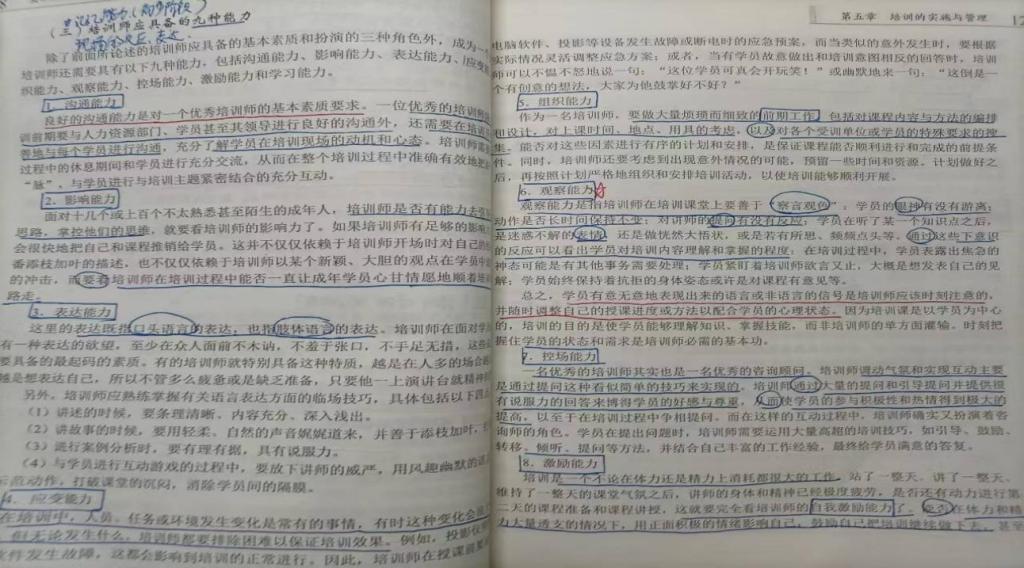 (三)培训师应具备的九种能力
除了前面所论述的培训师应具备的基本素质和扮演的三种角色外，成为一
培训师还需要具有以下九种能力，包括沟通能力、影响能力、表达能力、应变
织能力、观察能力、控场能力、激励能力和学习能力。
1. 沟通能力
良好的沟通能力是对一个优秀培训师的基本素质要求。一位优秀的培训师
训前期要与人力资源部门、学员甚至其领导进行良好的沟通外，还需要在培训
善地与每个学员进行沟通，充分了解学员在培训现场的动机和心态。培训师需
过程中的休息期间和学员进行充分交流，从而在整个培训过程中准确有效地把
“脉”，与学员进行与培训主题紧密结合的充分互动。
2. 影响能力
面对十几个或上百个不太熟悉甚至陌生的成年人，培训师是否有能力去
思路，掌控他们的思维，就要看培训师的影响力了。如果培训师有足够的影响
会很快地把自己和课程推销给学员。这并不仅仅依赖于培训师开场时对自己的
番添枝加叶的描述，也不仅仅依赖于培训师以某个新颖、大胆的观点在学员中
的冲击，而要看培训师在培训过程中能否一直让成年学员心甘情愿地顺着培训
路走。
3. 表达能力
这里的表达既指口头语言的表达，也指肢体语言的表达。培训师在面对学
有一种表达的欲望，至少在众人面前不木讷，不羞于张口，不手足无措，这些
要具备的最起码的素质。有的培训师就特别具备这种特质，越是在人多的场合
越是想表达自己，所以不管多么疲惫或是缺乏准备，只要他一上演讲台就精神
另外，培训师应熟练掌握有关语言表达方面的临场技巧，具体包括以下
（1）讲述的时候，要条理清晰、内容充分、深入浅出。
（2）讲故事的时候，要用轻柔、自然的声音娓娓道来，并善于添枝加叶，
（3）进行案例分析时，要有理有据，具有说服力。
（4）与学员进行互动游戏的过程中，要放下讲师的威严，用风趣幽默的
示范动作，打破课堂的沉闷，消除学员间的隔膜。
4. 应变能力
在培训中，人员、任务或环境发生变化是常有的事情，有时这种变化会
但无论发生什么，培训师都要排除困难以保证培训效果。例如，投影仪
件发生故障，这都会影响到培训的正常进行。因此，培训师在授课前要
第五章 培训的实施与管理
电脑软件、投影等设备发生故障或断电时的应急预案，而当类似的意外发生时，要根据
实际情况灵活调整应急方案；或者，当有学员故意做出和培训意图相反的回答时，培训
师可以不愠不怒地说一句：“这位学员可真会开玩笑！”或幽默地来一句：“这倒是一
个有创意的想法，大家为他鼓掌好不好？”
5. 组织能力
作为一名培训师，要做大量烦琐而细致的前期工作，包括对课程内容与方法的编排
和设计，对上课时间、地点、用具的考虑，以及对各个受训单位或学员的特殊要求的搜
集。能否对这些因素进行有序的计划和安排，是保证课程能否顺利进行和完成的前提条
件。同时，培训师还要考虑到出现意外情况的可能，预留一些时间和资源。计划做好之
后，再按照计划严格地组织和安排培训活动，以使培训能够顺利开展。
6. 观察能力
观察能力是指培训师在培训课堂上要善于“察言观色”：学员的眼神有没有游离；
动作是否长时间保持不变；对讲师的提问有没有反应；学员在听了某一个知识点之后，
是迷惑不解的表情，还是做恍然大悟状，或是若有所思、频频点头等。通过这些下意识
的反应可以看出学员对培训内容理解和掌握的程度：在培训过程中，学员表露出焦急的
神态可能是有其他事务需要处理；学员紧盯着培训师欲言又止，大概是想发表自己的见
解；学员始终保持着抗拒的身体姿态或许是对课程有意见等。
总之，学员有意无意地表现出来的语言或非语言的信号是培训师应该时刻注意的，
并随时调整自己的授课进度或方法以配合学员的心理状态。因为培训课是以学员为中心
的，培训的目的是使学员能够理解知识、掌握技能，而非培训师的单方面灌输。时刻把
握住学员的状态和需求是培训师必需的基本功。
7. 控场能力
一名优秀的培训师其实也是一名优秀的咨询顾问。培训师调动气氛和实现互动主要
是通过提问这种看似简单的技巧来实现的。培训师通过大量的提问和引导提问并提供很
有说服力的回答来博得学员的好感与尊重，从而使学员的参与积极性和热情得到极大的
提高，以至于在培训过程中争相提问。而在这样的互动过程中，培训师确实又扮演着咨
询师的角色。学员在提出问题时，培训师需要运用大量高超的培训技巧，如引导、鼓励、
转移、倾听、提问等方法，并结合自己丰富的工作经验，最终给学员满意的答复。
8. 激励能力
培训是一个不论在体力还是精力上消耗都很大的工作，站了一整天、讲了一整天、
维持了一整天的课堂气氛之后，讲师的身体和精神已经极度疲劳，是否还有动力进行第
二天的课程准备和课程讲授，这就要完全看培训师的自我激励能力了。能否在体力和精
力大量透支的情况下，用正面积极的情绪影响自己，鼓励自己把培训继续做下去，甚至